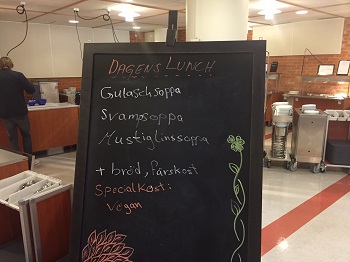 DAGENS LUNCH
Gulaschsoppa
Svampsoppa
Mustiglinssoppa
+ bröd, färskost
Specialkost:
Vegan